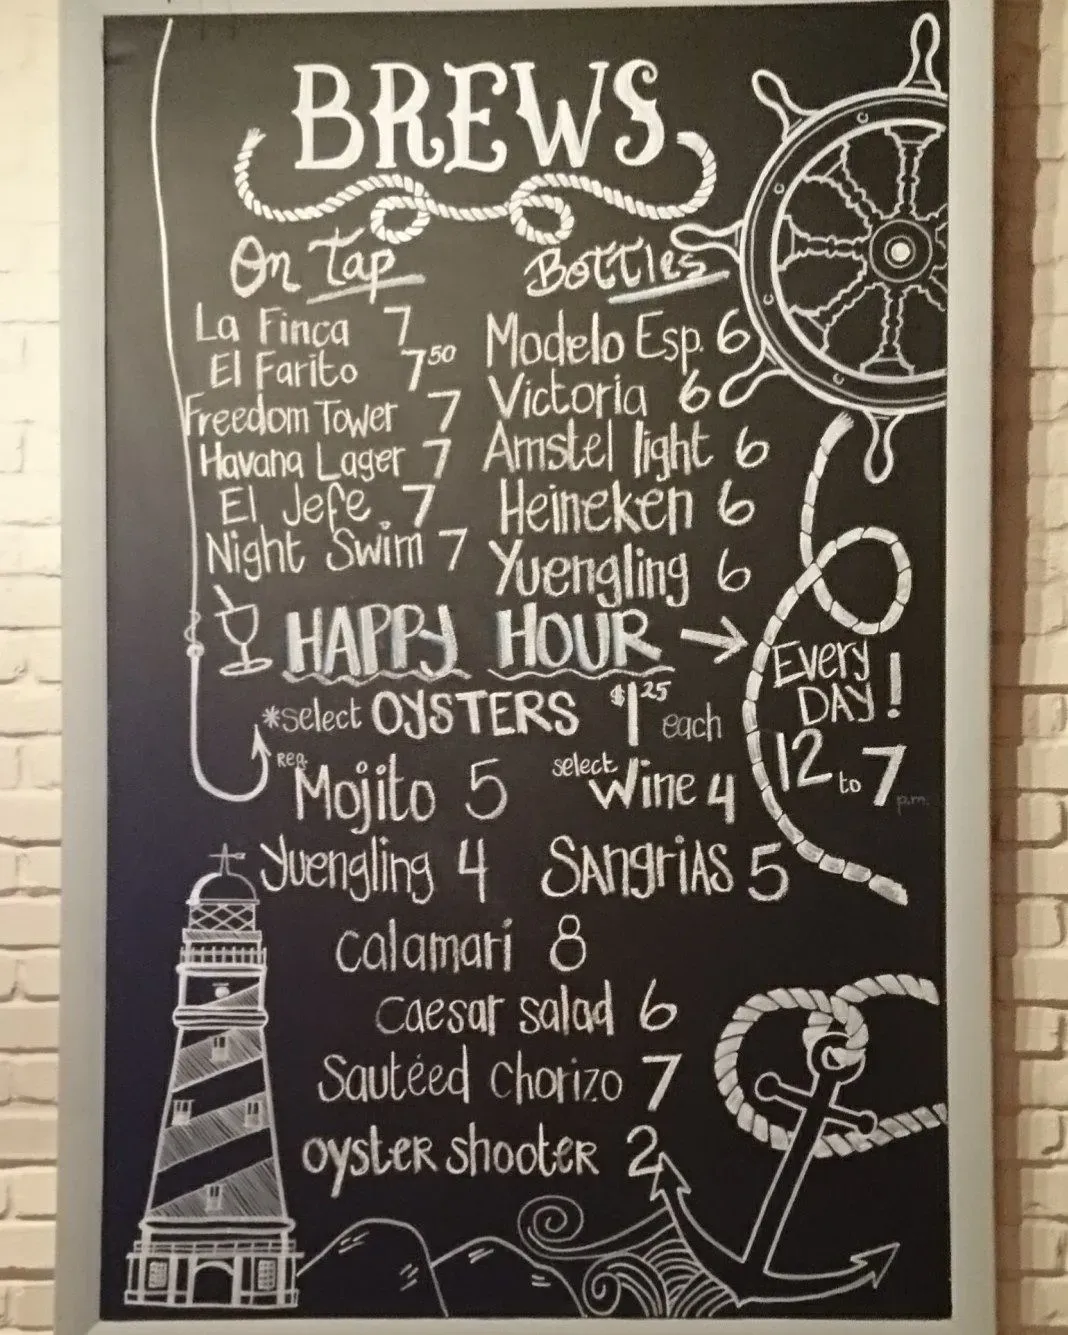 BREWS
On Tap
La Finca 7
El Farito 7⁵⁰
Freedom Tower 7
Havana Lager 7
El Jefe 7
Night Swim 7
Bottles
Modelo Esp. 6
Victoria 6
Amstel light 6
Heineken 6
Yuengling 6
HAPPY HOUR →
EVERY
DAY!
12 to 7 p.m.
*select OYSTERS $1²⁵ each
REG. Mojito 5
select Wine 4
Yuengling 4
SANgRiAS 5
calamari 8
caesar salad 6
Sautéed Chorizo 7
oysteR shooteR 2